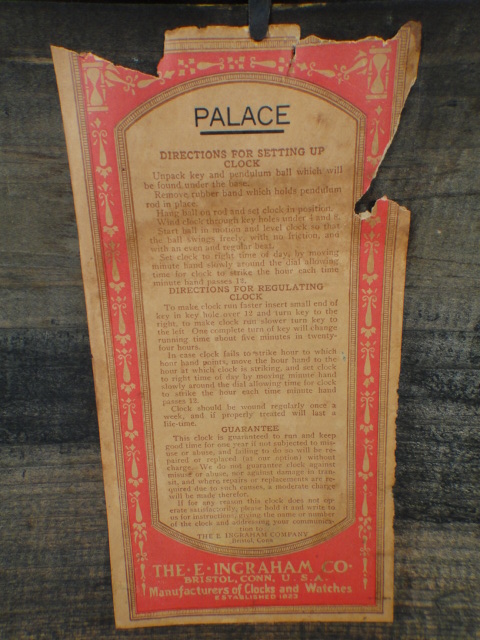 PALACE
DIRECTIONS FOR SETTING UP
CLOCK
Unpack key and pendulum ball which will
be found under the base.
Remove rubber band which holds pendulum
rod in place.
Hang ball on rod and set clock in position.
Wind clock through key holes under 4 and 8.
Start ball in motion and level clock so that
the ball swings freely, with no friction, and
with an even and regular beat.
Set clock to right time of day, by moving
minute hand slowly around the dial allowing
time for clock to strike the hour each time
minute hand passes 12.
DIRECTIONS FOR REGULATING
CLOCK
To make clock run faster insert small end of
key in key hole over 12 and turn key to the
right, to make clock run slower turn key to
the left. One complete turn of key will change
running time about five minutes in twenty-
four hours.
In case clock fails to strike hour to which
hour hand points, move the hour hand to the
hour at which clock is striking, and set clock
to right time of day by moving minute hand
slowly around the dial allowing time for clock
to strike the hour each time minute hand
passes 12.
Clock should be wound regularly once a
week, and if properly treated will last a
life-time.
GUARANTEE
This clock is guaranteed to run and keep
good time for one year if not subjected to mis-
use or abuse, and failing to do so will be re-
paired or replaced (at our option) without
charge. We do not guarantee clock against
misuse or abuse, nor against damage in tran-
sit, and where repairs or replacements are re-
quired due to such causes, a moderate charge
will be made therefor.
If for any reason this clock does not op-
erate satisfactorily, please hold it and write to
us for instructions, giving the name or number
of the clock and addressing your communica-
tion to:
THE E. INGRAHAM COMPANY
Bristol, Conn.
THE·E·INGRAHAM CO·
BRISTOL, CONN, U.S.A.
Manufacturers of Clocks and Watches
ESTABLISHED 1823